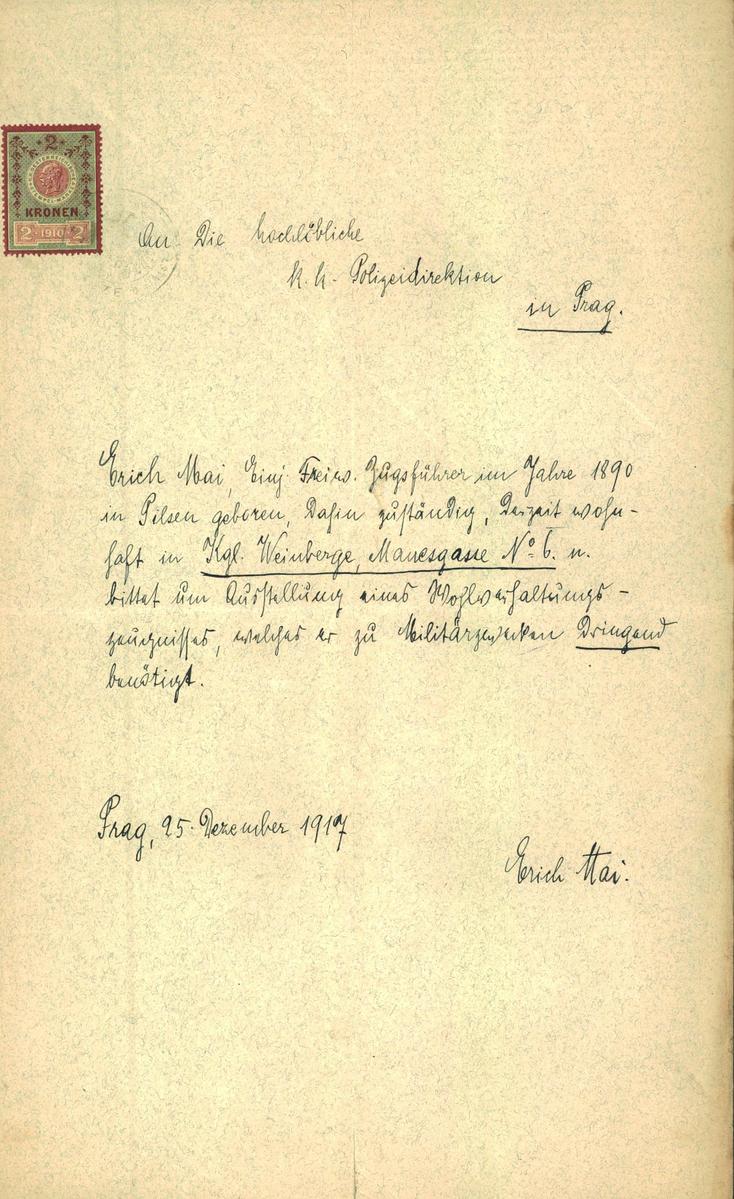 2
KRONEN
2 1910 2
An die hochlöbliche
k. k. Polizeidirektion
in Prag.
Erich Mai, Einj. Freiw. Zugsführer im Jahre 1890
in Pilsen geboren, dahin zuständig, derzeit wohn-
haft in Kgl. Weinberge, Manesgasse No 6. u.
bittet um Ausstellung eines Wohlverhaltungs-
zeugnisses, welches er zu Militärzwecken dringend
benötigt.
Prag, 25. Dezember 1917
Erich Mai.